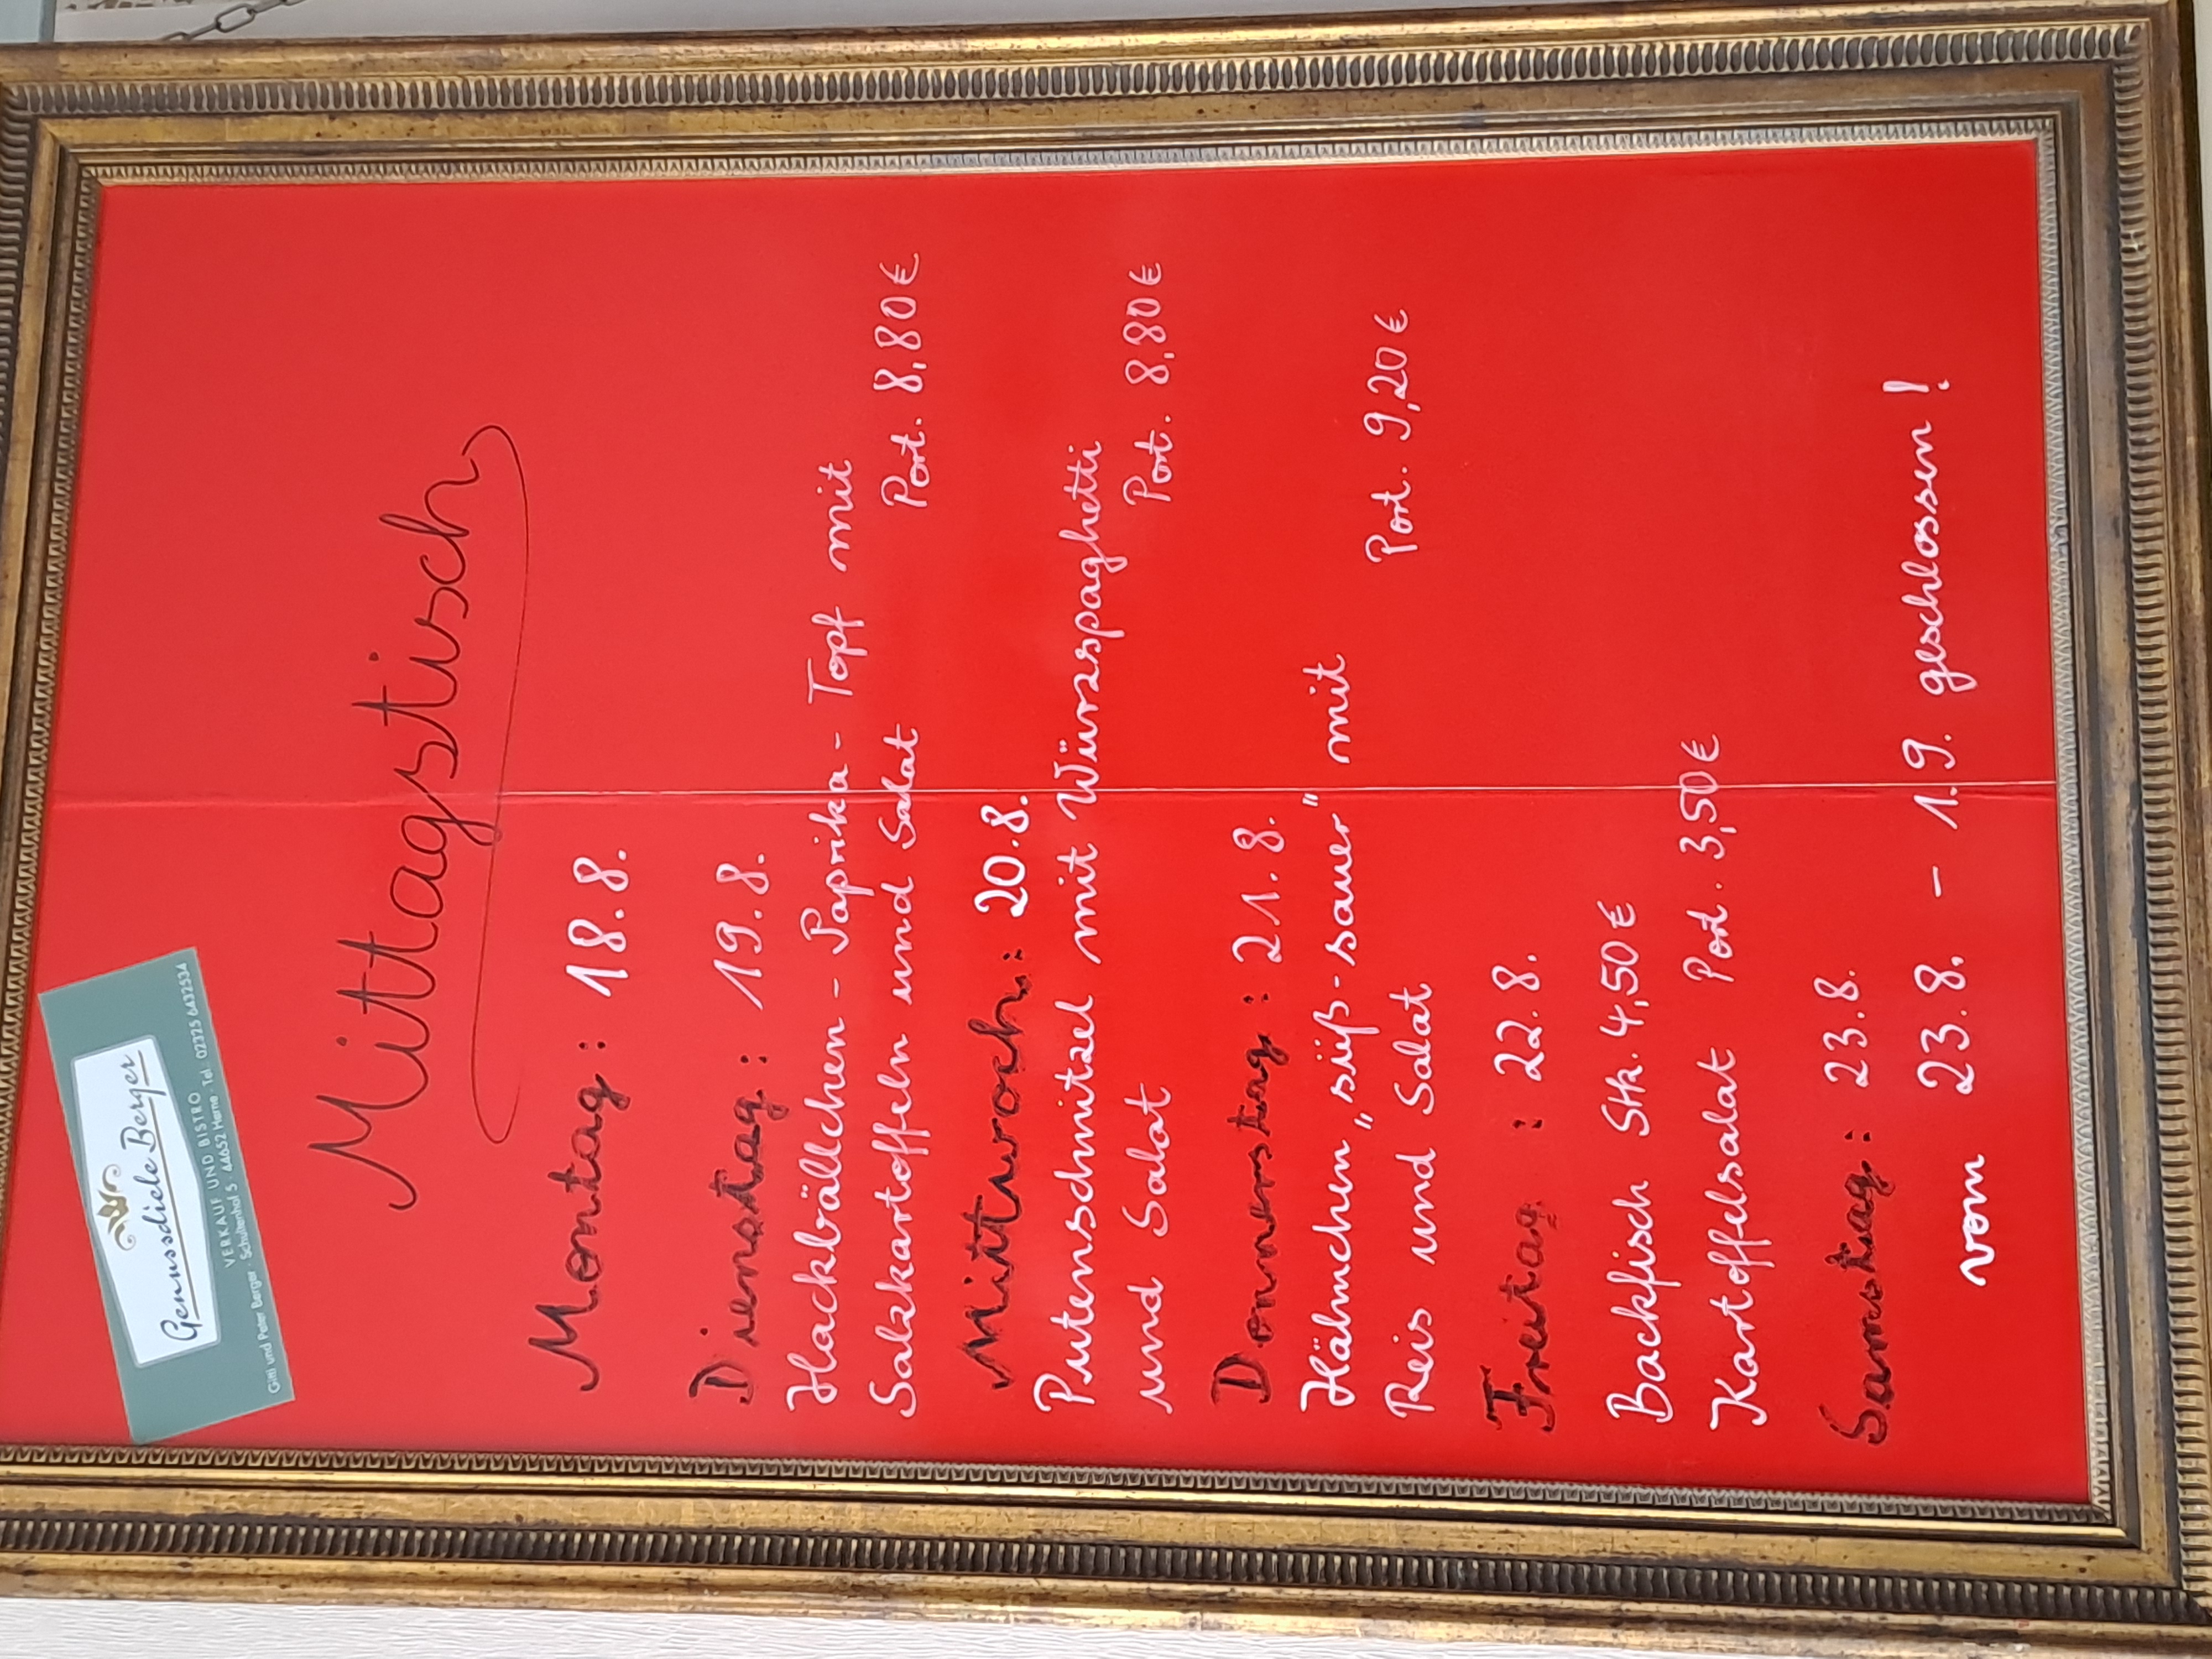 Genussdiele Berger
VERKAUF UND BISTRO
Gitti und Peter Berger · Schultenhof 5 · 44652 Herne · Tel. 02325 6432534
Mittagstisch
Montag : 18.8.
Dienstag : 19.8.
Hackbällchen - Paprika - Topf mit
Salzkartoffeln und Salat Port. 8,80€
Mittwoch : 20.8.
Putenschnitzel mit Würzspaghetti
und Salat Port. 8,80€
Donnerstag : 21.8.
Hähnchen „süß-sauer" mit
Reis und Salat Port. 9,20€
Freitag : 22.8.
Backfisch Stk. 4,50€
Kartoffelsalat Port. 3,50€
Samstag : 23.8.
vom 23.8. - 1.9. geschlossen!